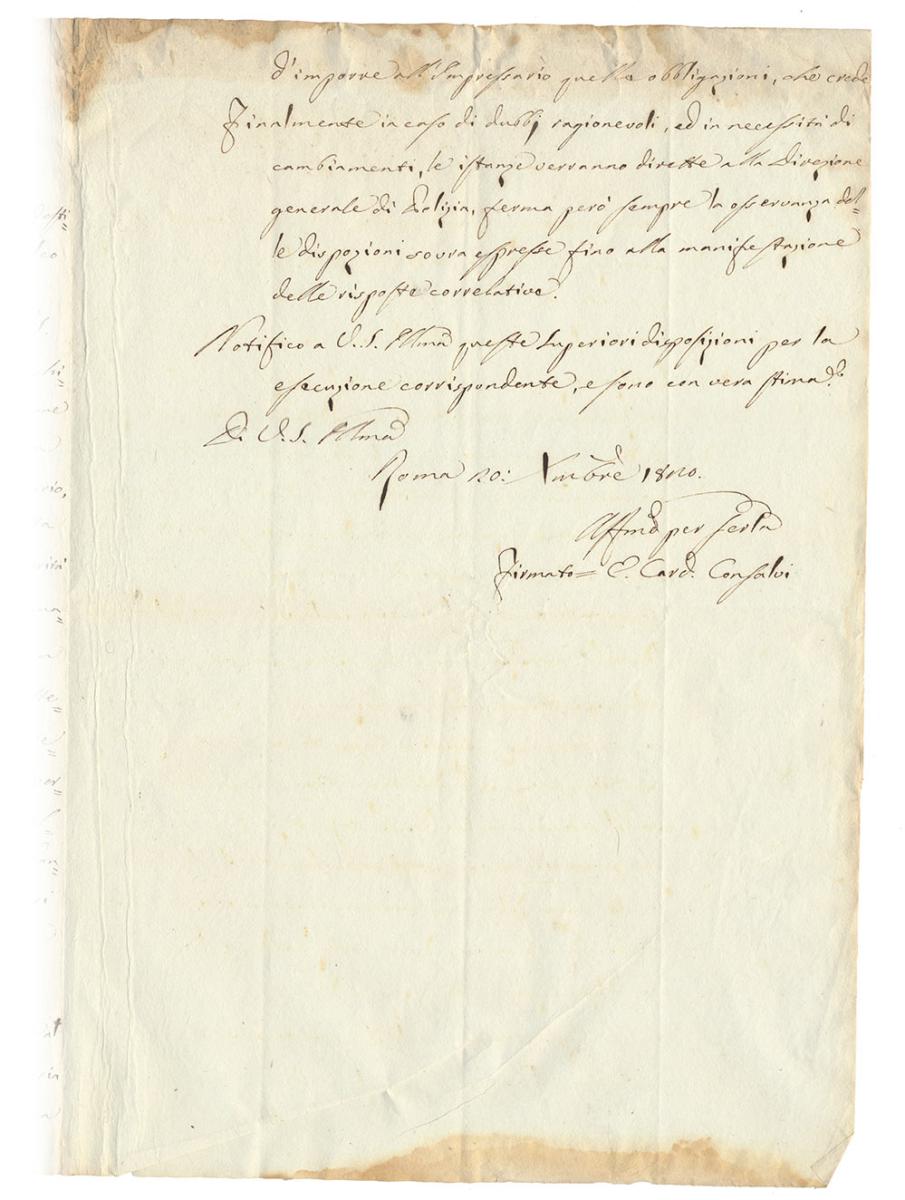 d'imporre all'Impressario quelle obbligazioni, che crede
Finalmente in caso di dubbj ragionevoli, ed in necessità di
cambiamenti, le istanze verranno dirette alla Direzione
generale di Polizia, ferma però sempre la osservanza del=
le dispozioni sovra espresse fino alla manifestazione
delle risposte correlative.
Notifico a V. S. Illma queste Superiori disposizioni per la
esecuzione corrispondente, e sono con vera stima
Di V. S. Illma
Roma 20: Xmbrè 1820.
Affmo per Serla
Firmato= E. Card. Consalvi